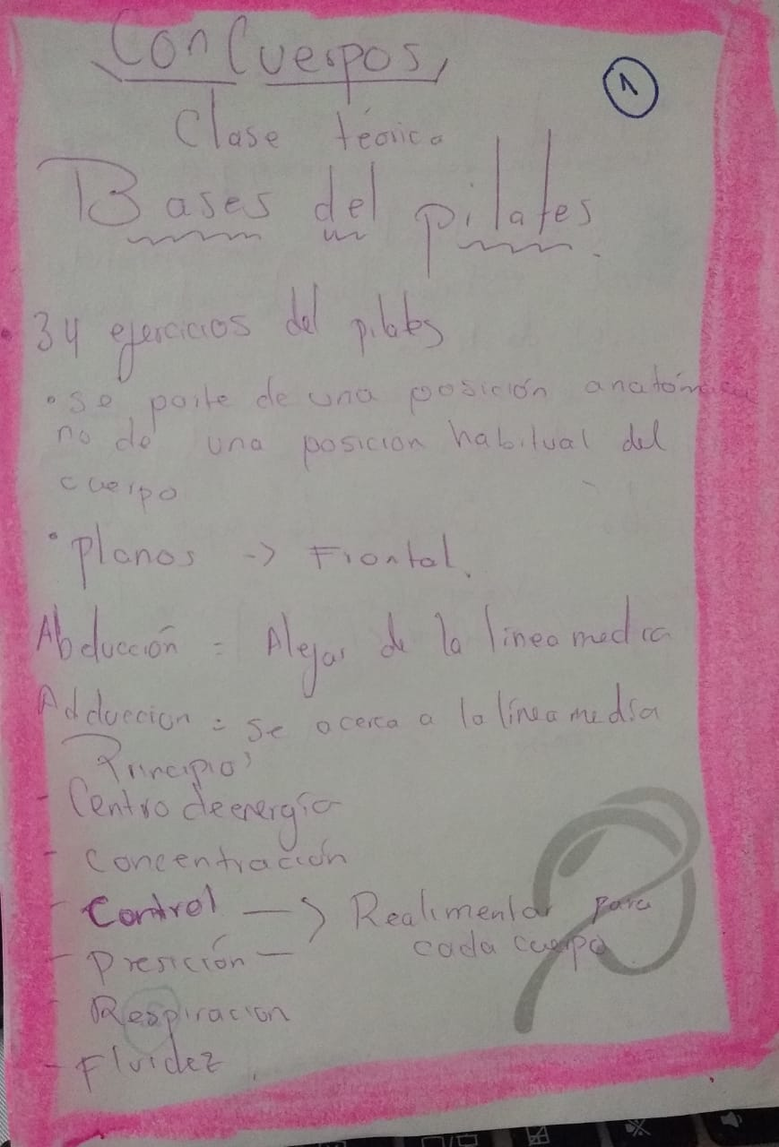 ConCuerpos
1
Clase teórica
Bases del pilates.
• 34 ejercicios del pilates
• se parte de una posición anatómica
no de una posicion habitual del
cuerpo
• Planos -> Frontal.
Abducción = Alejar de la linea media
Adduccion = se acerca a la línea media
Principios
- Centro de energía
- Concentración
- Control —> Realimentar para
cada cuerpo
- Presición —
- Respiracion
- Fluidez.